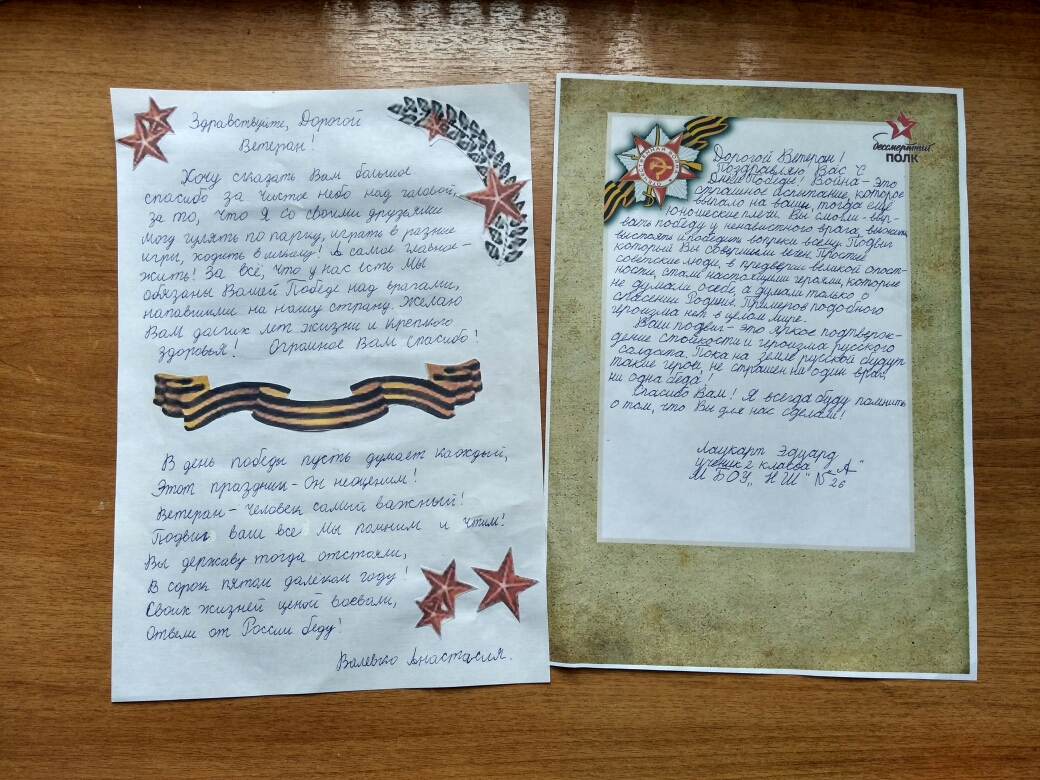 Здравствуйте, Дорогой
Ветеран!
Хочу сказать Вам большое
спасибо за чистое небо над головой,
за то, что Я со своими друзьями
могу гулять по парку, играть в разные
игры, ходить в школу! А самое главное –
жить! За всё, что у нас есть Мы
обязаны Вашей Победе над врагами,
напавшими на нашу страну. Желаю
Вам долгих лет жизни и крепкого
здоровья! Огромное Вам спасибо!
В день победы пусть думает каждый,
Этот праздник – Он неоценим!
Ветеран – человек самый важный!
Подвиг ваш все Мы помним и чтим!
Вы державу тогда отстояли,
В сорок пятом далёком году!
Своих жизней ценой воевали,
Отвели от России беду!
Валевко Анастасия.
ОТЕЧЕСТВЕННАЯ ВОЙНА
бессмертный
ПОЛК
Дорогой Ветеран!
Поздравляю Вас с
Днем Победы! Война – это
страшное испытание, которое
выпало на ваши, тогда ещё
юношеские плечи. Вы смогли выр-
вать победу у ненавистного врага, выжить,
выстоять и победить вопреки всему. Подвиг
который Вы совершили вечен. Простые
советские люди, в предверии великой опаст-
ности, стали настоящими героями, которые
не думали о себе, а думали только о
спасении Родине. Примеров подобного
героизма нет в целом мире.
Ваш подвиг – это яркое подтверж-
дение стойкости и героизма русского
солдата. Пока на земле русской будут
такие герои, не страшен ни один враг,
ни одна беда!
Спасибо Вам! Я всегда буду помнить
о том, что Вы для нас сделали!
Лацкарт Эдуард
ученик 2 класса "А"
МБОУ "НШ" № 26